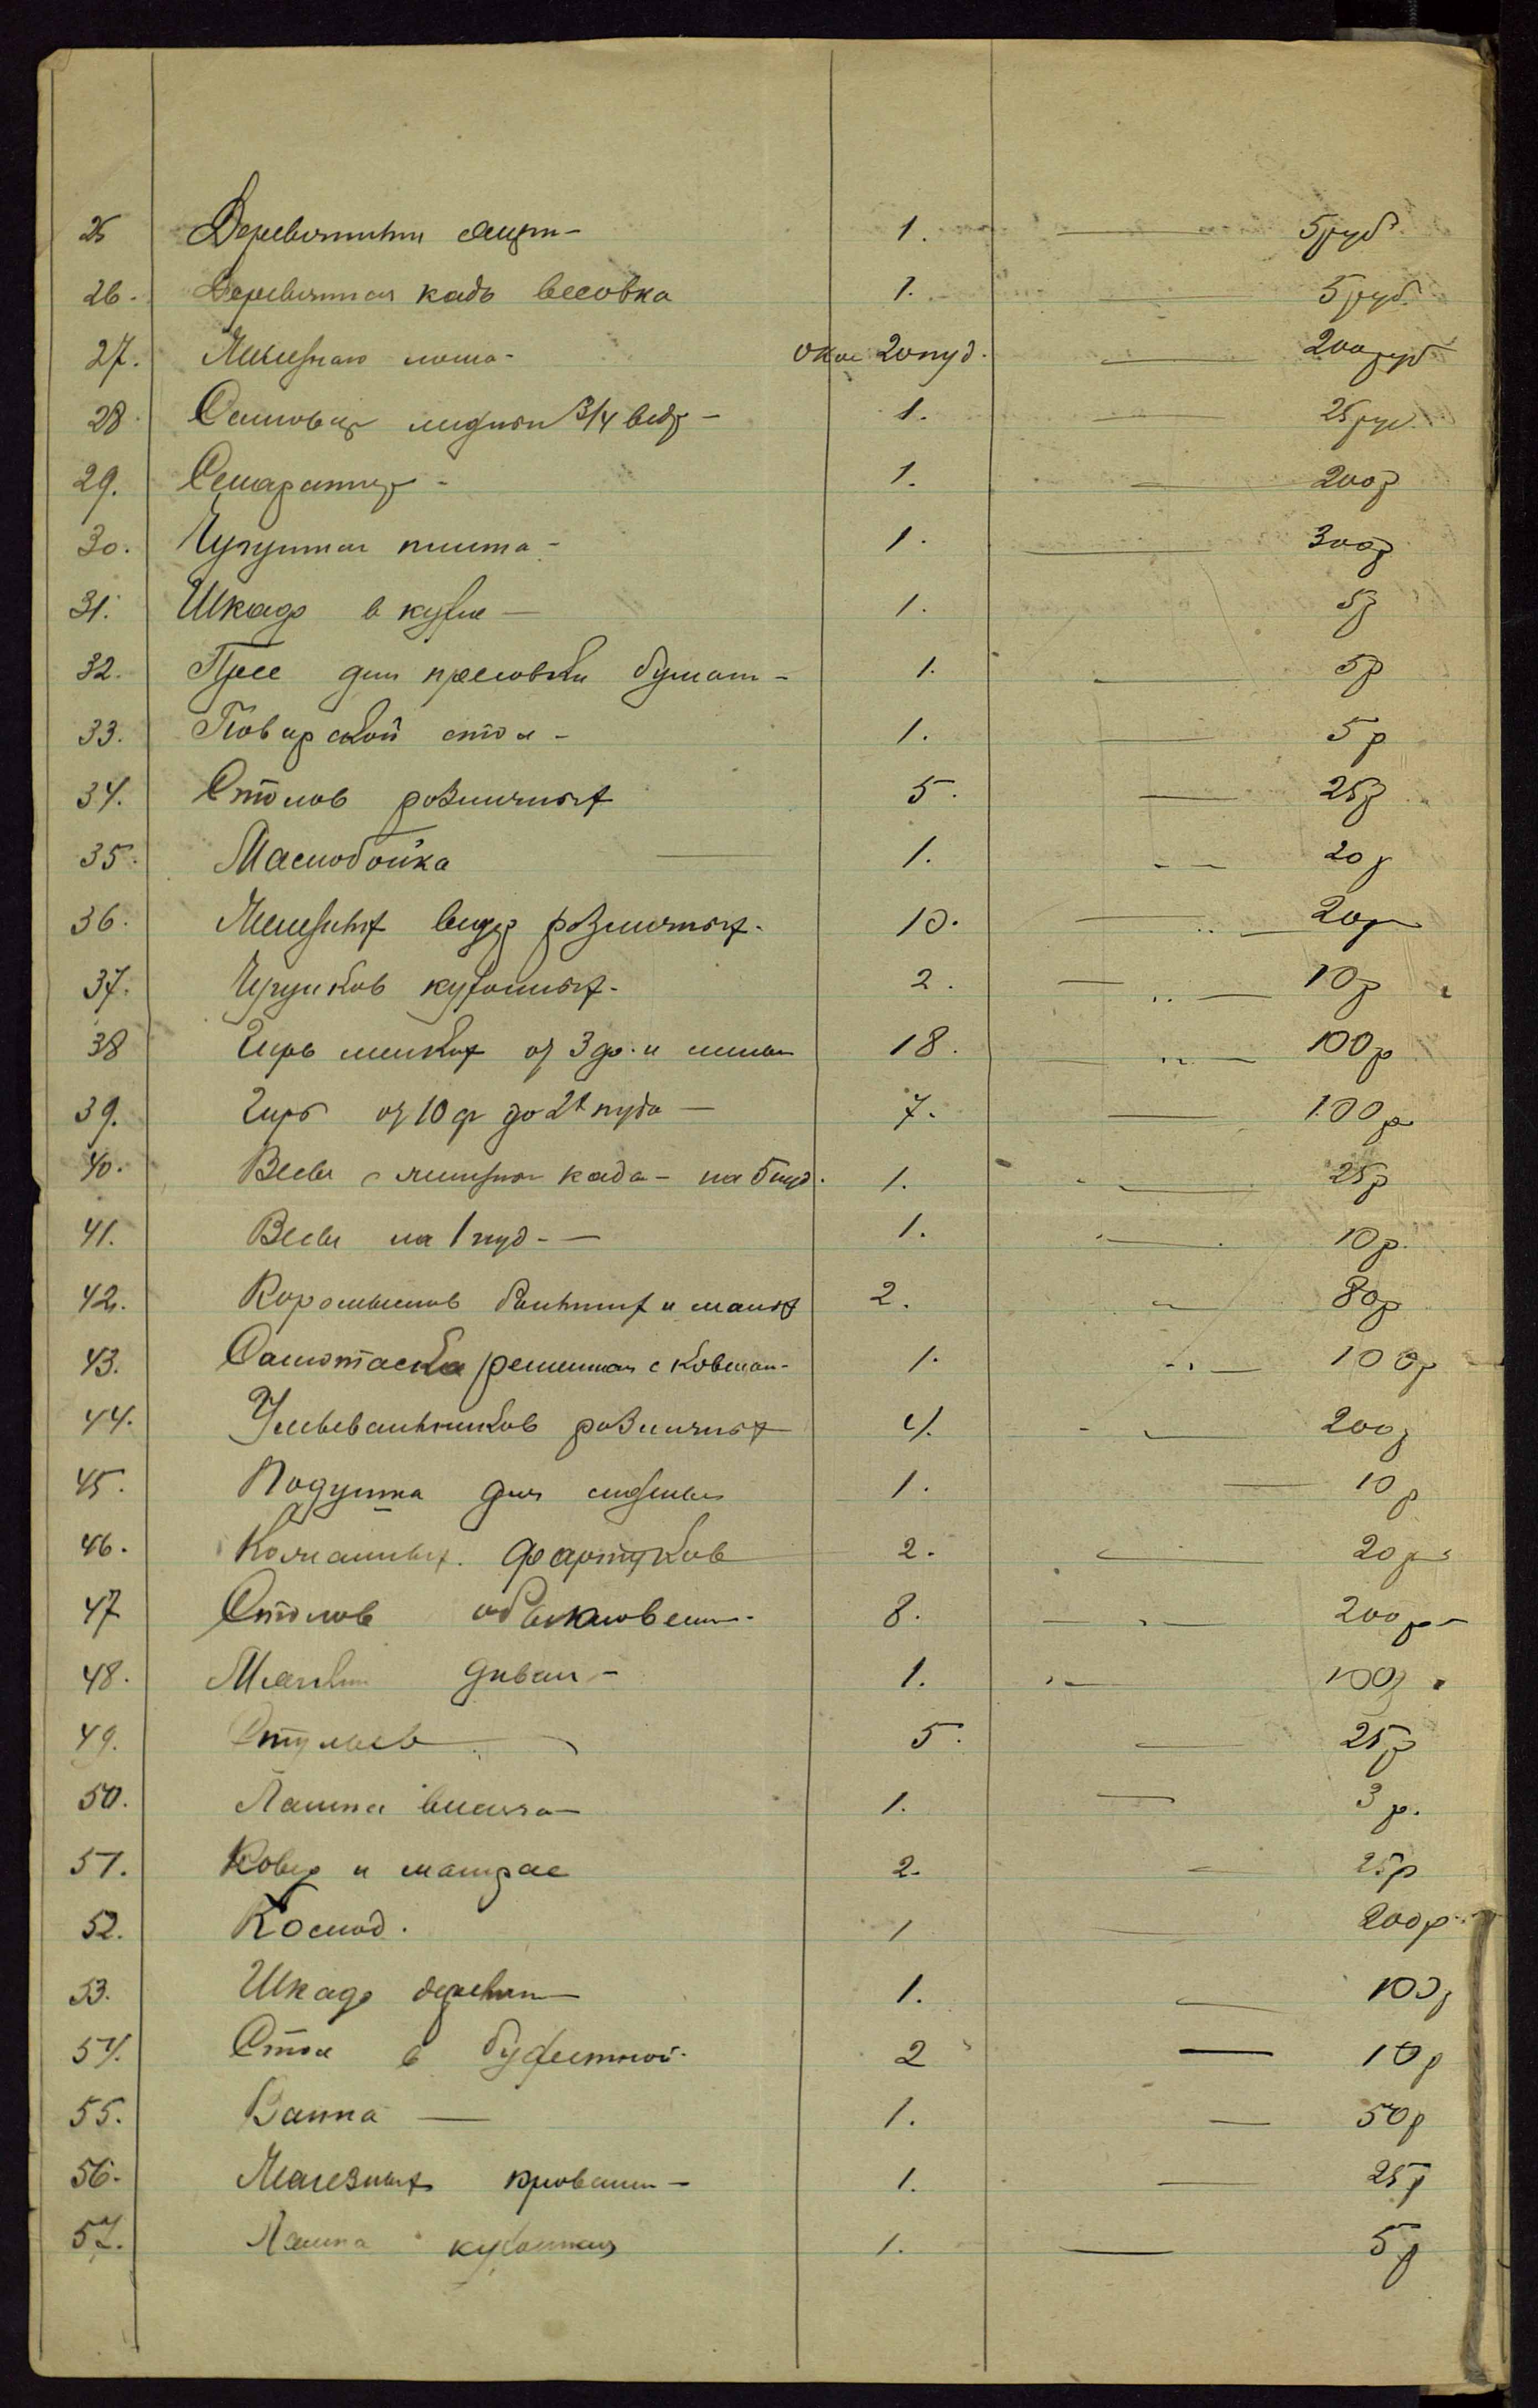 25 Деревянный 1. — 5 руб
26. Деревянная кадь весовка 1. — 5 руб.
27. Железного лома - окол 20 пуд. — 200 руб
28 Самовар медный 3/4 ведр - 1. — 25 руб.
29. Сепаратор - 1. — 200 р
30. Чугунная плита - 1. — 300 р
31. Шкаф в кухне — 1. 5 р
32. Пресс для пресовки бумаги - 1. — 5 р
33. Поварской стол - 1. — 5 р
34. Столов различных 5. — 25 р
35. Маслобойка — 1. — 20 р
36. Железных ведер различных. 10. — 20 р
37. Чугунков кухонных. 2. — 10 р
38 Гирь мелких от 3 ф. и 18. — 100 р
39. Гирь от 10 ф до 2х пуда — 7. — 100 р
40. Весы с на 5 пуд. 1. — 25 р
41. Весы на 1 пуд - — 1. — 10 р.
42. Коромыслов больших и малых 2. — 80 р
43. Самотаска ременная с ковшами - 1. — 100 р
44. Умывальников различных 4. — 200 р
45. Подушка для сиденья 1. — 10 р
46. Кожанных. фартуков 2. — 20 р
47 Столов обыкновенн. 8. — 200 р -
48. Мягкий диван - 1. — 100 р
49. Стульев 5. — 25 р
50. Лампа висяча — 1. — 3 р.
51. Ковер и матрас 2. — 25 р
52. Комод. 1 — 200 р
53. Шкаф деревян — 1. — 100 р
54. Стол в буфетной. 2 — 10 р
55. Ванна — 1. — 50 р
56. Железных кровати - 1. — 25 р
57. Лампа кухонная 1. — 5 р